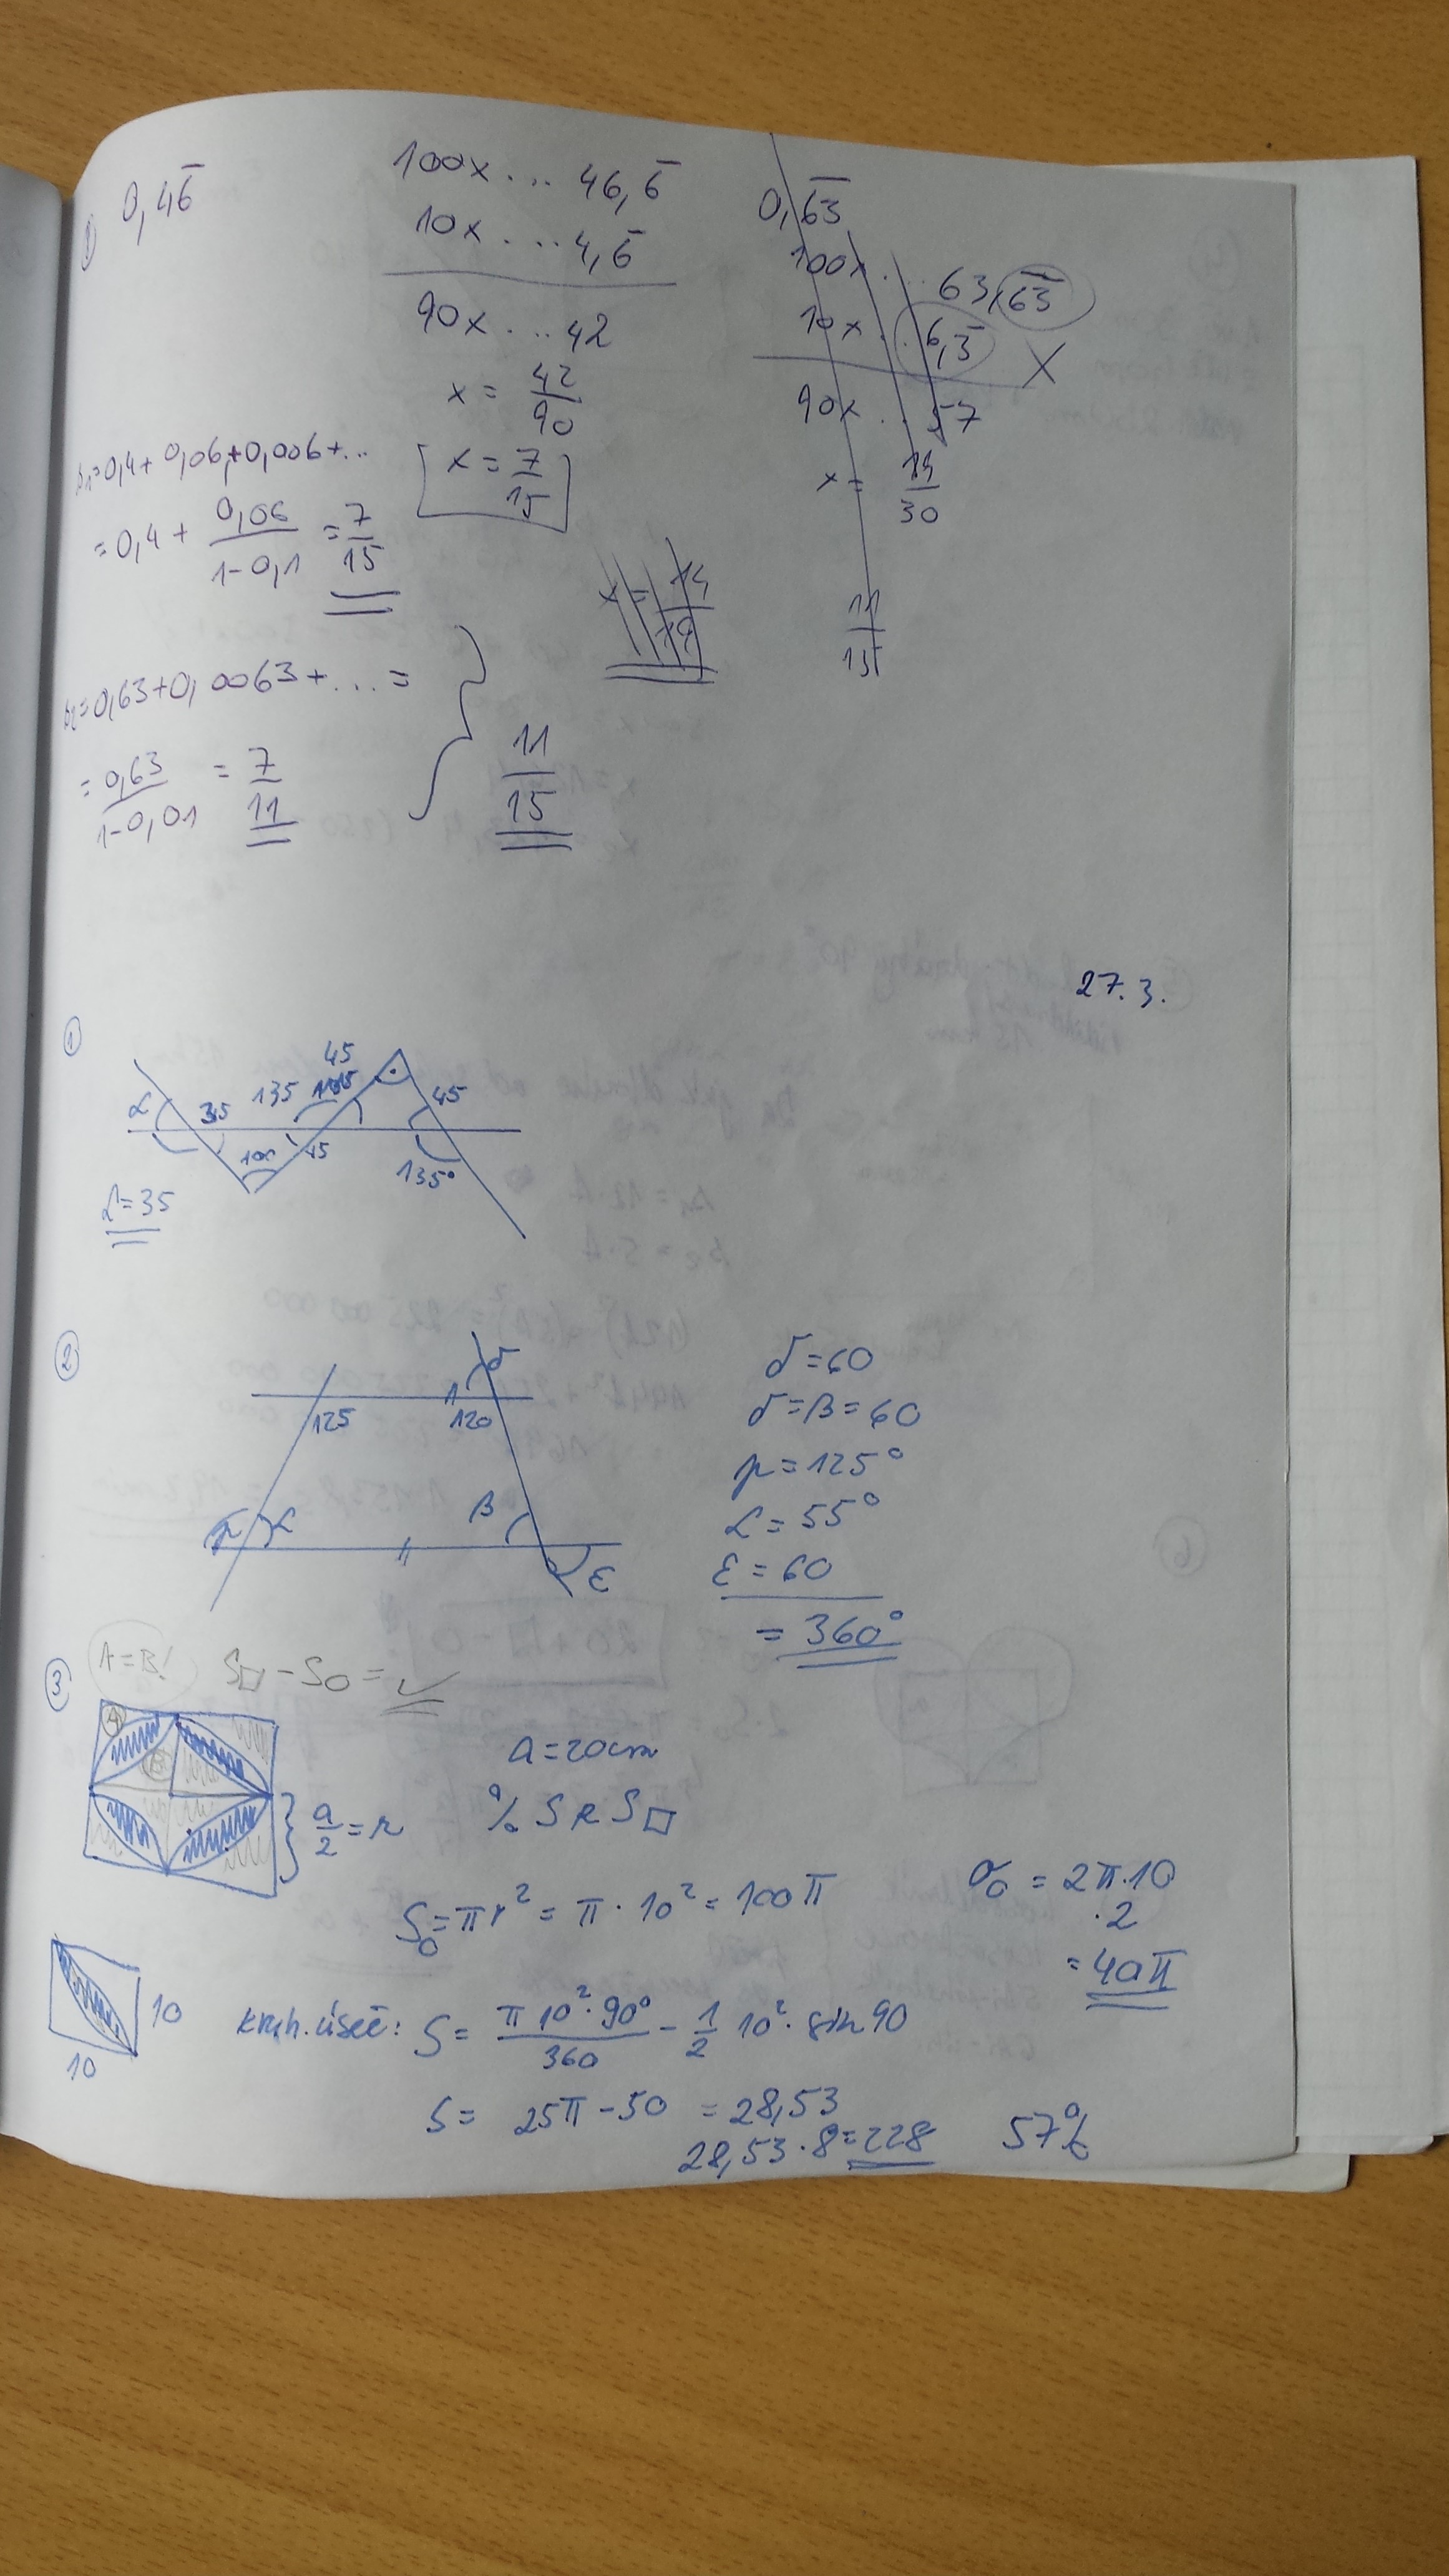 1) 0,46̅
100x ... 46,6̅
10x ... 4,6̅
90x ... 42
x = 42/90
x = 7/15
s₁=0,4+0,06+0,006+...
=0,4 + 0,06/(1-0,1) = 7/15
s₂=0,63+0,0063+... =
= 0,63/(1-0,01) = 7/11
11/15
0,6̅3̅
100x ... 63,6̅3̅
10x ... 6,3̅
X
90x ... 57
x = 19/30
11/15
27.3.
1
α 35 135 45 45
100 45 135°
α=35
2
δ
125 120
μ α β ε
δ=60
δ=β=60
μ=125°
α=55°
ε=60
= 360°
3 A=B! S□ - S○ =
A
B
a/2 = r
a=20cm
% S z S□
S○=πr² = π·10² = 100π
σ○ = 2π·10
·2
= 40π
10
10
kruh. úseč: S = π 10²·90°/360 - 1/2 10²· sin 90
S = 25π - 50 = 28,53
28,53·8=228 57%